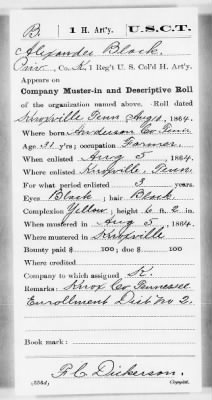 B. | 1 H. Art'y. | U.S.C.T.
Alexander Black.
Priv., Co. K, 1 Reg't U. S. Col'd H. Art'y.
Appears on
Company Muster-in and Descriptive Roll
of the organization named above. Roll dated
Knoxville Tenn Aug 10, 1864.
Where born Anderson Co. Tenn
Age 31 y'rs; occupation Farmer
When enlisted Aug 5, 1864.
Where enlisted Knoxville, Tenn.
For what period enlisted 3 years.
Eyes Black; hair Black
Complexion Yellow; height 6 ft. 2 in.
When mustered in Aug 5, 1864.
Where mustered in Knoxville
Bounty paid $ 100; due $ 100
Where credited
Company to which assigned K.
Remarks: Knox Co Tennessee
Enrollment Dist No 2.
Book mark:
R. C. Dickerson.
Copyist.